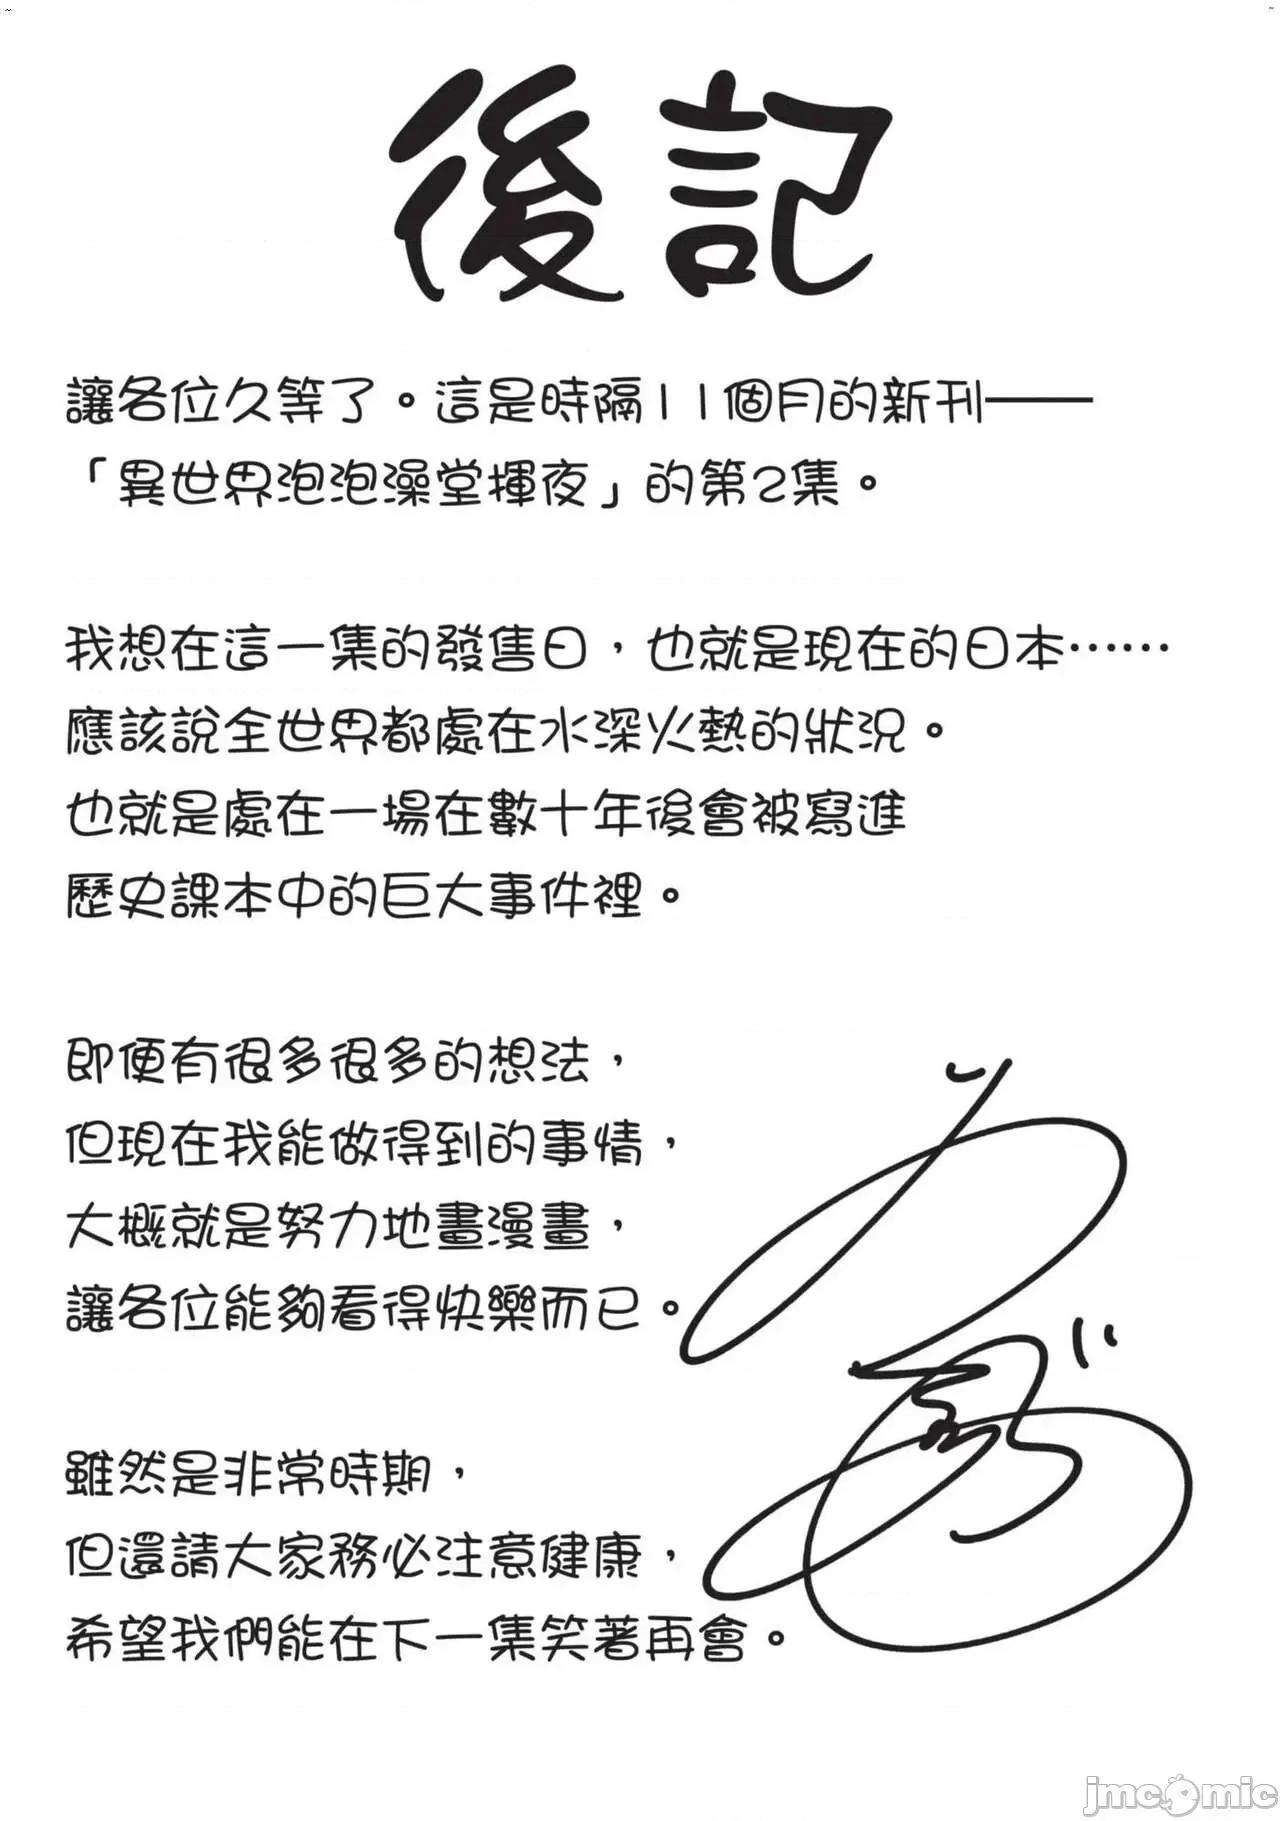 後記
讓各位久等了。這是時隔11個月的新刊——
「異世界泡泡澡堂揮夜」的第2集。
我想在這一集的發售日，也就是現在的日本……
應該說全世界都處在水深火熱的狀況。
也就是處在一場在數十年後會被寫進
歷史課本中的巨大事件裡。
即便有很多很多的想法，
但現在我能做得到的事情，
大概就是努力地畫漫畫，
讓各位能夠看得快樂而已。
雖然是非常時期，
但還請大家務必注意健康，
希望我們能在下一集笑著再會。
jmcomic